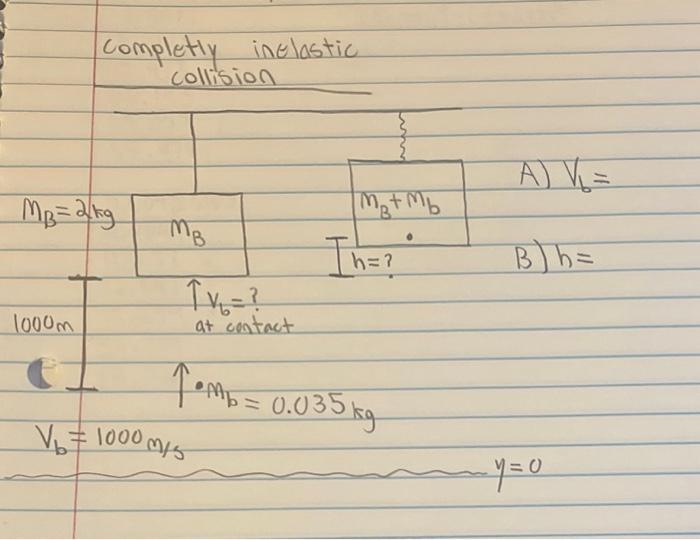 completly inelastic
collision
M_B = 2kg
M_B
M_B + M_b
h = ?
A) V_b =
B) h =
↑ V_b = ?
at contact
1000m
↑ • M_b = 0.035 kg
V_b = 1000 m/s
y = 0